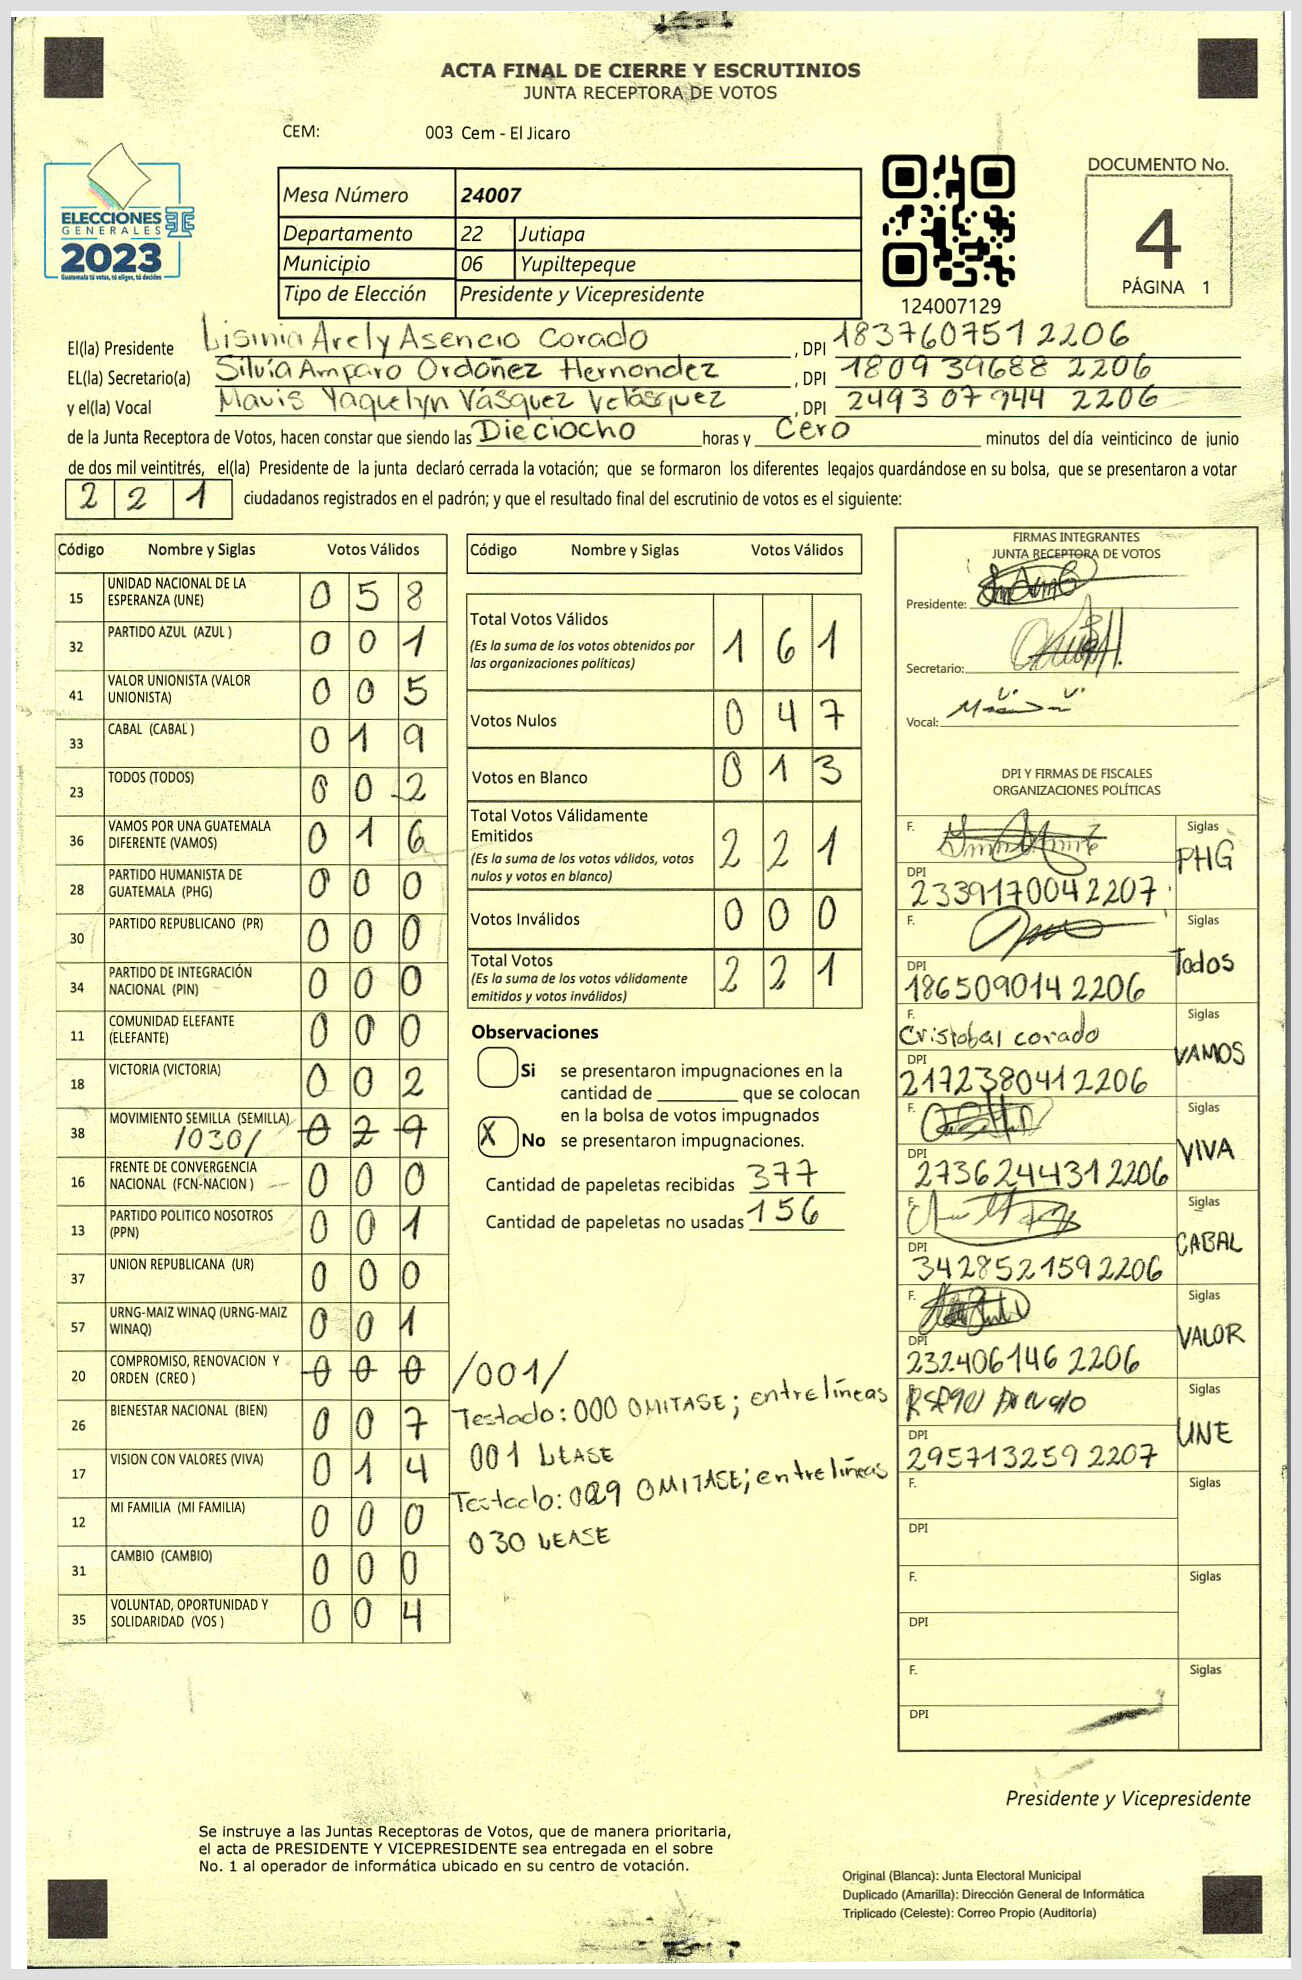 ACTA FINAL DE CIERRE Y ESCRUTINIOS
JUNTA RECEPTORA DE VOTOS
CEM: 003 Cem - El Jicaro
ELECCIONES
GENERALES
2023
Guatemala tú votas, tú eliges, tú decides
Mesa Número 24007
Departamento 22 Jutiapa
Municipio 06 Yupiltepeque
Tipo de Elección Presidente y Vicepresidente
124007129
DOCUMENTO No.
4
PÁGINA 1
El(la) Presidente Lisinia Arely Asencio Corado , DPI 183760751 2206
EL(la) Secretario(a) Silvia Amparo Ordoñez Hernondez , DPI 1809 39688 2206
y el(la) Vocal Mavis Yaquelyn Vásquez Velásquez , DPI 2493 07944 2206
de la Junta Receptora de Votos, hacen constar que siendo las Dieciocho horas y Cero minutos del día veinticinco de junio
de dos mil veintitrés, el(la) Presidente de la junta declaró cerrada la votación; que se formaron los diferentes legajos guardándose en su bolsa, que se presentaron a votar
2 2 1 ciudadanos registrados en el padrón; y que el resultado final del escrutinio de votos es el siguiente:
Código Nombre y Siglas Votos Válidos
15 UNIDAD NACIONAL DE LA ESPERANZA (UNE) 0 5 8
32 PARTIDO AZUL (AZUL ) 0 0 1
41 VALOR UNIONISTA (VALOR UNIONISTA) 0 0 5
33 CABAL (CABAL ) 0 1 9
23 TODOS (TODOS) 0 0 2
36 VAMOS POR UNA GUATEMALA DIFERENTE (VAMOS) 0 1 6
28 PARTIDO HUMANISTA DE GUATEMALA (PHG) 0 0 0
30 PARTIDO REPUBLICANO (PR) 0 0 0
34 PARTIDO DE INTEGRACIÓN NACIONAL (PIN) 0 0 0
11 COMUNIDAD ELEFANTE (ELEFANTE) 0 0 0
18 VICTORIA (VICTORIA) 0 0 2
38 MOVIMIENTO SEMILLA (SEMILLA) /030/ 0 2 9
16 FRENTE DE CONVERGENCIA NACIONAL (FCN-NACION ) 0 0 0
13 PARTIDO POLITICO NOSOTROS (PPN) 0 0 1
37 UNION REPUBLICANA (UR) 0 0 0
57 URNG-MAIZ WINAQ (URNG-MAIZ WINAQ) 0 0 1
20 COMPROMISO, RENOVACION Y ORDEN (CREO ) 0 0 0 /001/
26 BIENESTAR NACIONAL (BIEN) 0 0 7
17 VISION CON VALORES (VIVA) 0 1 4
12 MI FAMILIA (MI FAMILIA) 0 0 0
31 CAMBIO (CAMBIO) 0 0 0
35 VOLUNTAD, OPORTUNIDAD Y SOLIDARIDAD (VOS ) 0 0 4
Código Nombre y Siglas Votos Válidos
Total Votos Válidos 1 6 1
(Es la suma de los votos obtenidos por
las organizaciones políticas)
Votos Nulos 0 4 7
Votos en Blanco 0 1 3
Total Votos Válidamente
Emitidos 2 2 1
(Es la suma de los votos válidos, votos
nulos y votos en blanco)
Votos Inválidos 0 0 0
Total Votos 2 2 1
(Es la suma de los votos válidamente
emitidos y votos inválidos)
Observaciones
Si se presentaron impugnaciones en la
cantidad de ________ que se colocan
en la bolsa de votos impugnados
X No se presentaron impugnaciones.
Cantidad de papeletas recibidas 377
Cantidad de papeletas no usadas 156
Testado: 000 OMITASE; entre líneas
001 LEASE
Testado: 029 OMITASE; entre líneas
030 LEASE
FIRMAS INTEGRANTES
JUNTA RECEPTORA DE VOTOS
Presidente:
Secretario:
Vocal:
DPI Y FIRMAS DE FISCALES
ORGANIZACIONES POLÍTICAS
F. Siglas PHG
DPI 233917004 2207
F. Siglas Todos
DPI 186509014 2206
F. Cristobal corado Siglas VAMOS
DPI 217238041 2206
F. Siglas VIVA
DPI 273624431 2206
F. Siglas CABAL
DPI 342852159 2206
F. Siglas VALOR
DPI 232406146 2206
F. Siglas UNE
DPI 295713259 2207
F. Siglas
DPI
F. Siglas
DPI
F. Siglas
DPI
Presidente y Vicepresidente
Se instruye a las Juntas Receptoras de Votos, que de manera prioritaria,
el acta de PRESIDENTE Y VICEPRESIDENTE sea entregada en el sobre
No. 1 al operador de informática ubicado en su centro de votación.
Original (Blanca): Junta Electoral Municipal
Duplicado (Amarilla): Dirección General de Informática
Triplicado (Celeste): Correo Propio (Auditoría)